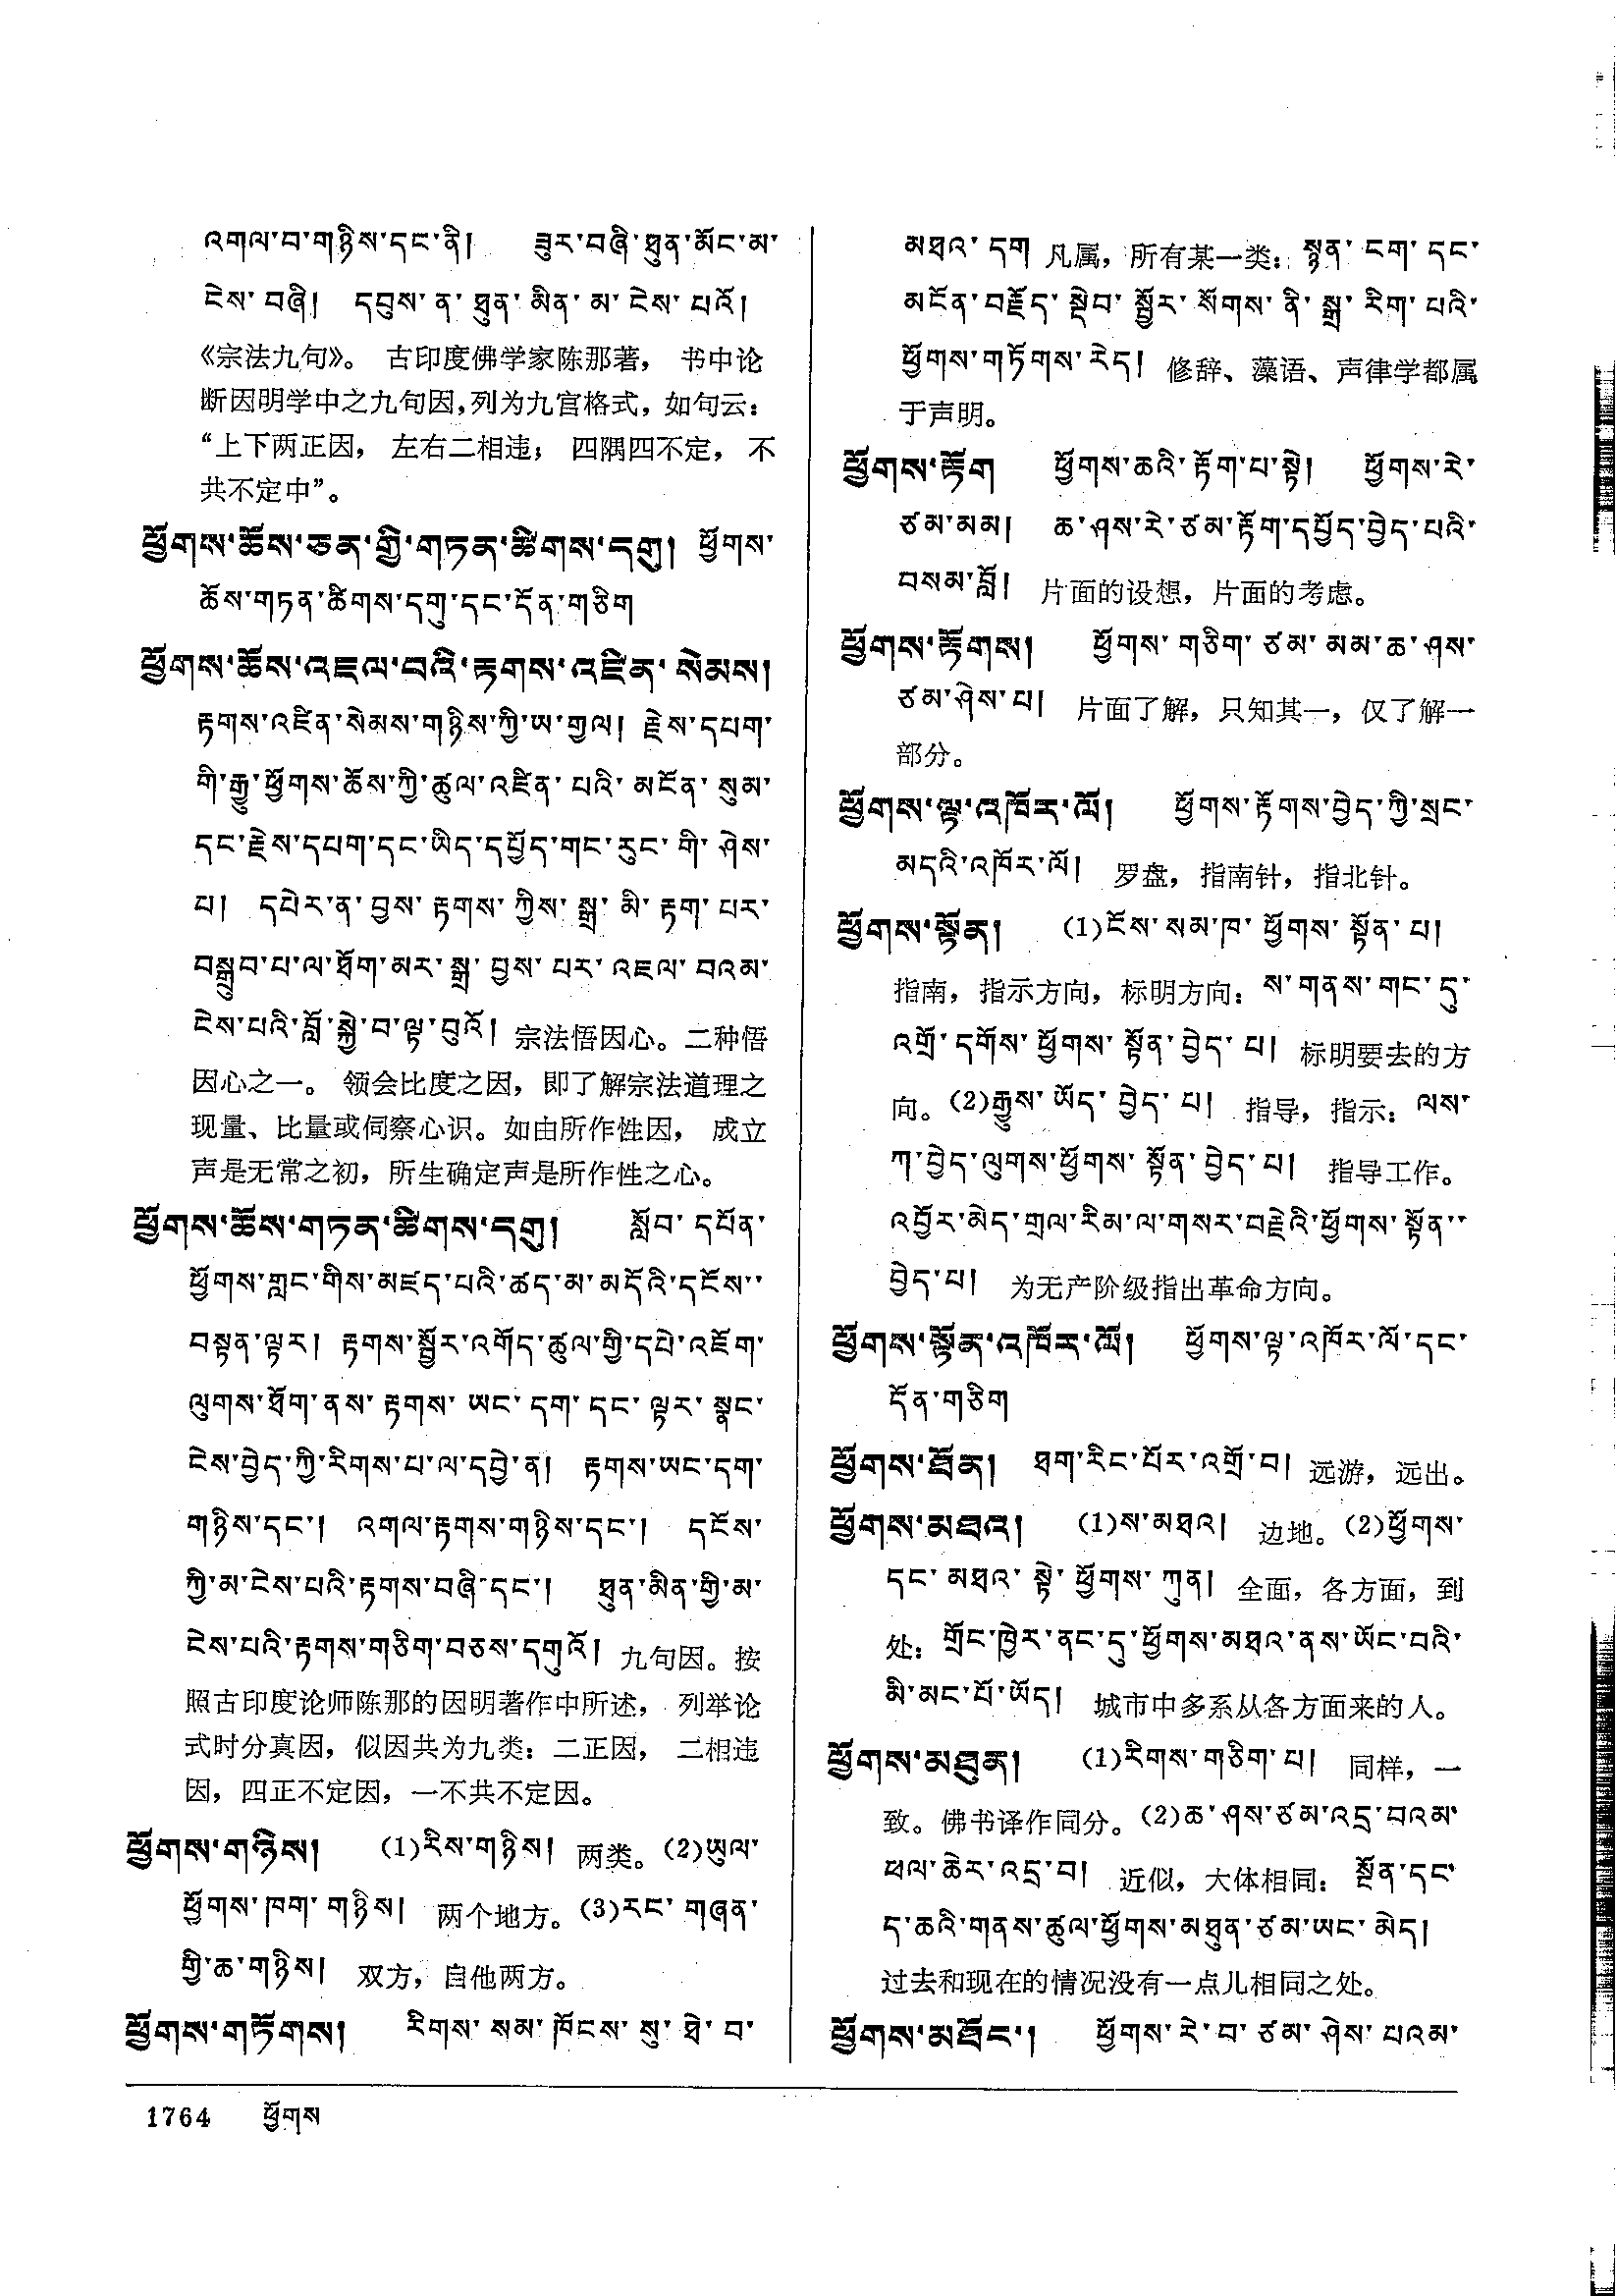 འགལ་བ་གཉིས་དང་ནི། ཟུར་བཞི་ཐུན་མོང་མ་
ངེས་བཞི། དབུས་ན་ཐུན་མིན་མ་ངེས་པའོ།
《宗法九句》。 古印度佛学家陈那著， 书中论
断因明学中之九句因，列为九宫格式，如句云：
“上下两正因， 左右二相违； 四隅四不定， 不
共不定中”。
ཕྱོགས་ཆོས་ཅན་གྱི་གཏན་ཚིགས་དགུ། ཕྱོགས་
ཆོས་གཏན་ཚིགས་དགུ་དང་དོན་གཅིག
ཕྱོགས་ཆོས་འཇལ་བའི་རྟགས་འཛིན་སེམས།
རྟགས་འཛིན་སེམས་གཉིས་ཀྱི་ཡ་གྱལ། རྗེས་དཔག་
གི་རྒྱུ་ཕྱོགས་ཆོས་ཀྱི་ཚུལ་འཛིན་པའི་མངོན་སུམ་
དང་རྗེས་དཔག་དང་ཡིད་དཔྱོད་གང་རུང་གི་ཤེས་
པ། དཔེར་ན་བྱས་རྟགས་ཀྱིས་སྒྲ་མི་རྟག་པར་
བསྒྲུབ་པ་ལ་ཐོག་མར་སྒྲ་བྱས་པར་འཇལ་བའམ་
ངེས་པའི་བློ་སྐྱེ་བ་ལྟ་བུའོ། 宗法悟因心。二种悟
因心之一。 领会比度之因，即了解宗法道理之
现量、比量或伺察心识。如由所作性因， 成立
声是无常之初，所生确定声是所作性之心。
ཕྱོགས་ཆོས་གཏན་ཚིགས་དགུ། སློབ་དཔོན་
ཕྱོགས་གླང་གིས་མཛད་པའི་ཚད་མ་མདོའི་དངོས་་
བསྟན་ལྟར། རྟགས་སྦྱོར་འགོད་ཚུལ་གྱི་དཔེ་འཇོག་
ལུགས་ཐོག་ནས་རྟགས་ཡང་དག་དང་ལྟར་སྣང་
ངེས་བྱེད་ཀྱི་རིགས་པ་ལ་དབྱེ་ན། རྟགས་ཡང་དག་
གཉིས་དང་། འགལ་རྟགས་གཉིས་དང་། དངོས་
ཀྱི་མ་ངེས་པའི་རྟགས་བཞི་དང་། ཐུན་མིན་གྱི་མ་
ངེས་པའི་རྟགས་གཅིག་བཅས་དགུའོ། 九句因。按
照古印度论师陈那的因明著作中所述， 列举论
式时分真因，似因共为九类：二正因， 二相违
因，四正不定因，一不共不定因。
ཕྱོགས་གཉིས། (1)རིས་གཉིས། 两类。(2)ཡུལ་
ཕྱོགས་ཁག་གཉིས། 两个地方。(3)རང་གཞན་
གྱི་ཆ་གཉིས། 双方，自他两方。
ཕྱོགས་གཏོགས། རིགས་སམ་ཁོངས་སུ་ཐེ་བ་
མཐའ་དག 凡属，所有某一类：སྙན་ངག་དང་
མངོན་བརྗོད་སྡེབ་སྦྱོར་སོགས་ནི་སྒྲ་རིག་པའི་
ཕྱོགས་གཏོགས་རེད། 修辞、藻语、声律学都属
于声明。
ཕྱོགས་རྟོག ཕྱོགས་ཆའི་རྟོག་པ་སྟེ། ཕྱོགས་རེ་
ཙམ་མམ། ཆ་ཤས་རེ་ཙམ་རྟོག་དཔྱོད་བྱེད་པའི་
བསམ་བློ། 片面的设想，片面的考虑。
ཕྱོགས་རྟོགས། ཕྱོགས་གཅིག་ཙམ་མམ་ཆ་ཤས་
ཙམ་ཤེས་པ། 片面了解，只知其一，仅了解一
部分。
ཕྱོགས་ལྟ་འཁོར་ལོ། ཕྱོགས་རྟོགས་བྱེད་ཀྱི་སྲང་
མདའི་འཁོར་ལོ། 罗盘，指南针，指北针。
ཕྱོགས་སྟོན། (1)ངོས་སམ་ཁ་ཕྱོགས་སྟོན་པ།
指南，指示方向，标明方向：ས་གནས་གང་དུ་
འགྲོ་དགོས་ཕྱོགས་སྟོན་བྱེད་པ། 标明要去的方
向。(2)རྒྱུས་ཡོད་བྱེད་པ། 指导，指示：ལས་
ཀ་བྱེད་ལུགས་ཕྱོགས་སྟོན་བྱེད་པ། 指导工作。
འབྱོར་མེད་གྲལ་རིམ་ལ་གསར་བརྗེའི་ཕྱོགས་སྟོན་་
བྱེད་པ། 为无产阶级指出革命方向。
ཕྱོགས་སྟོན་འཁོར་ལོ། ཕྱོགས་ལྟ་འཁོར་ལོ་དང་
དོན་གཅིག
ཕྱོགས་ཐོན། ཐག་རིང་པོར་འགྲོ་བ། 远游，远出。
ཕྱོགས་མཐའ། (1)ས་མཐའ། 边地。(2)ཕྱོགས་
དང་མཐའ་སྟེ་ཕྱོགས་ཀུན། 全面，各方面，到
处：གྲོང་ཁྱེར་ནང་དུ་ཕྱོགས་མཐའ་ནས་ཡོང་བའི་
མི་མང་པོ་ཡོད། 城市中多系从各方面来的人。
ཕྱོགས་མཐུན། (1)རིགས་གཅིག་པ། 同样，一
致。佛书译作同分。(2)ཆ་ཤས་ཙམ་འདྲ་བའམ་
ཕལ་ཆེར་འདྲ་བ། 近似，大体相同：སྔོན་དང་
ད་ཆའི་གནས་ཚུལ་ཕྱོགས་མཐུན་ཙམ་ཡང་མེད།
过去和现在的情况没有一点儿相同之处。
ཕྱོགས་མཐོང་། ཕྱོགས་རེ་བ་ཙམ་ཤེས་པའམ་
1764 ཕྱོགས